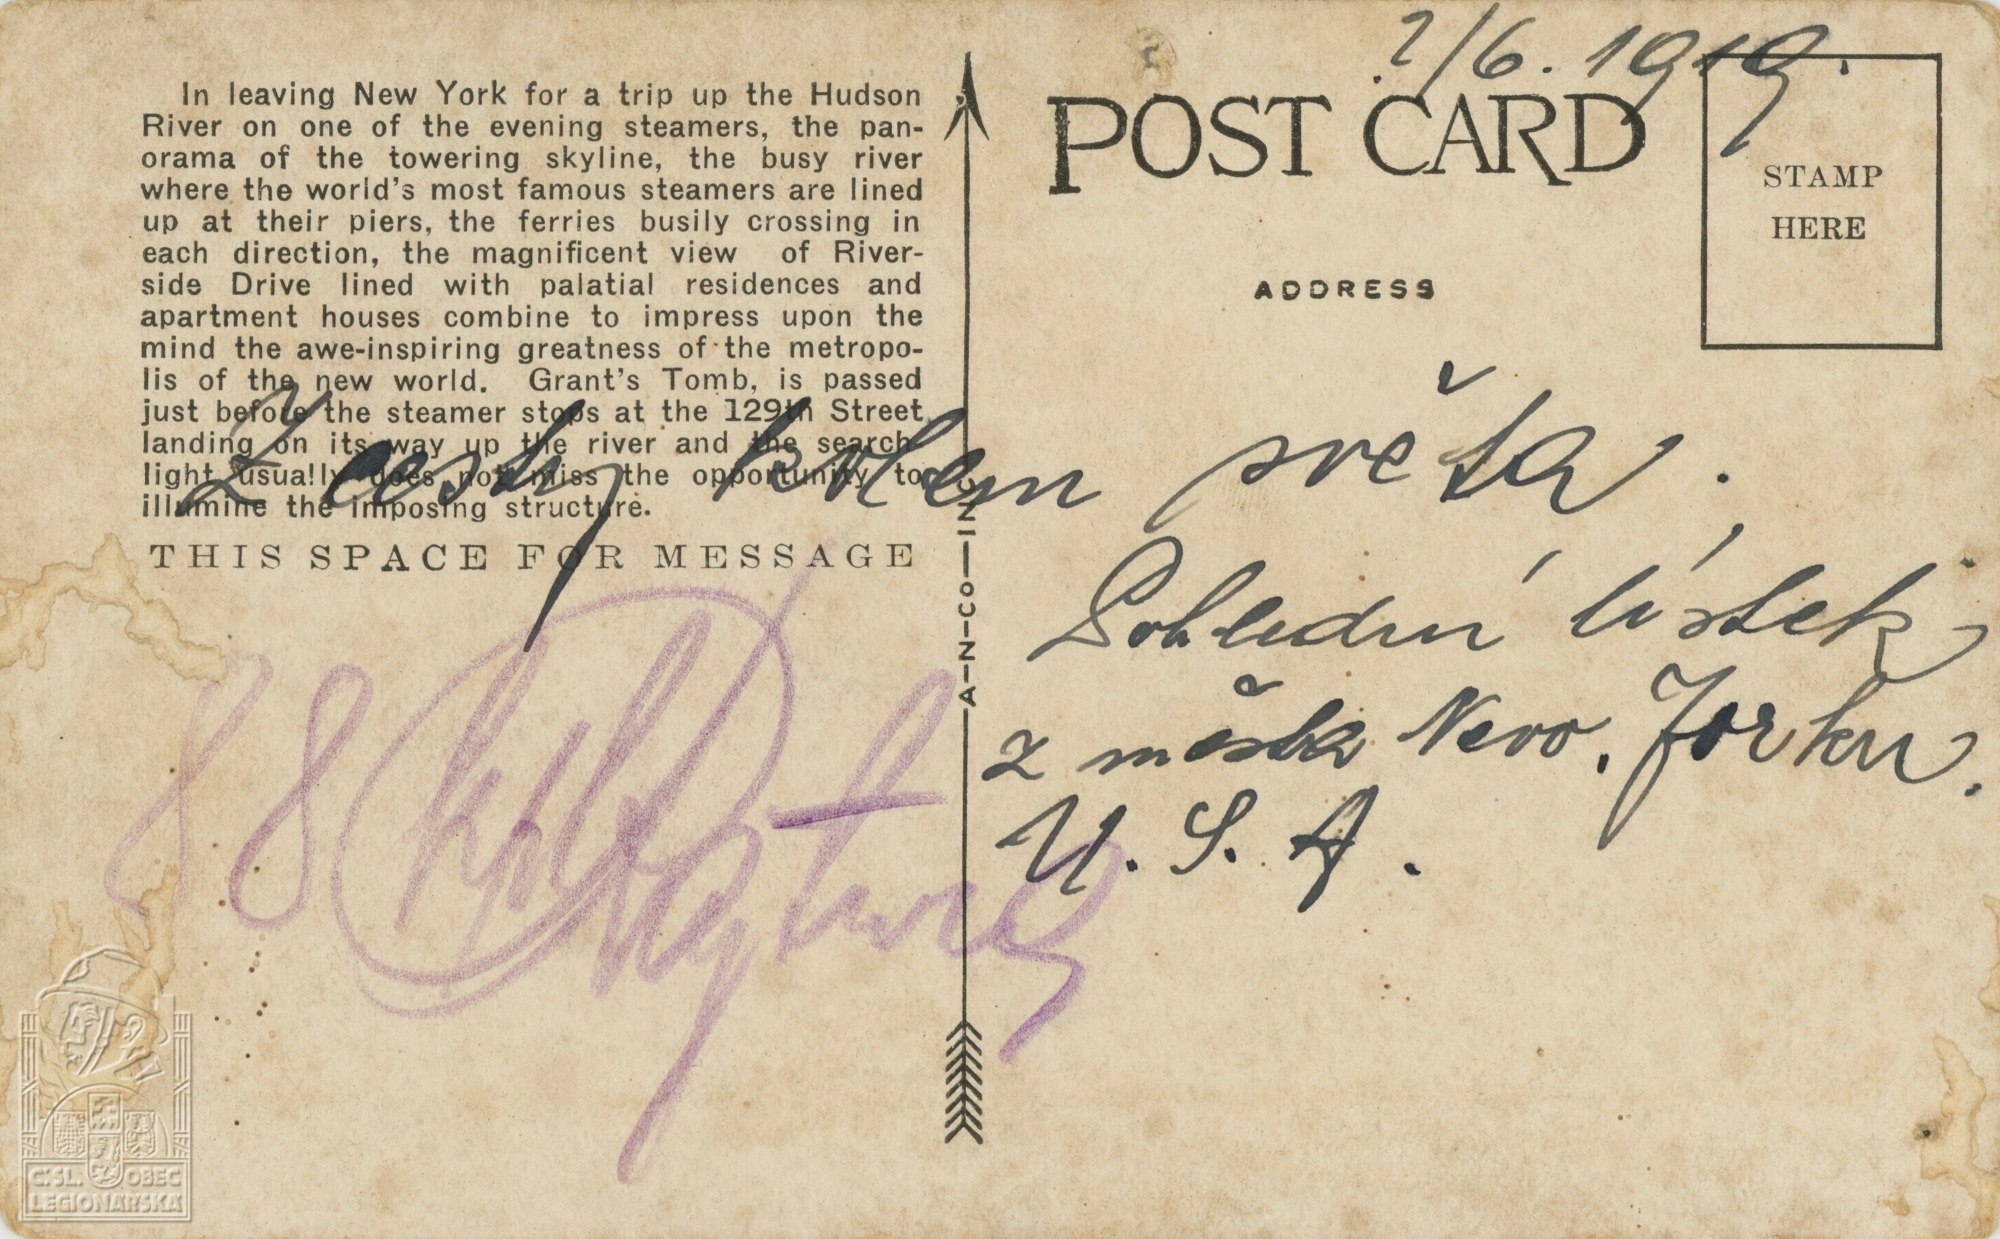 In leaving New York for a trip up the Hudson
River on one of the evening steamers, the pan-
orama of the towering skyline, the busy river
where the world's most famous steamers are lined
up at their piers, the ferries busily crossing in
each direction, the magnificent view of River-
side Drive lined with palatial residences and
apartment houses combine to impress upon the
mind the awe-inspiring greatness of the metropo-
lis of the new world. Grant's Tomb, is passed
just before the steamer stops at the 129th Street
landing on its way up the river and the search-
light usually does not miss the opportunity to
illumine the imposing structure.
THIS SPACE FOR MESSAGE
A-N-CO-INC
/6. 1919.
POST CARD
STAMP
HERE
ADDRESS
Z cesty kolem světa.
Pohlední lístek
z města Nevo. Jorku.
U. S. A.
88
Č.SL. OBEC
LEGIONÁŘSKÁ